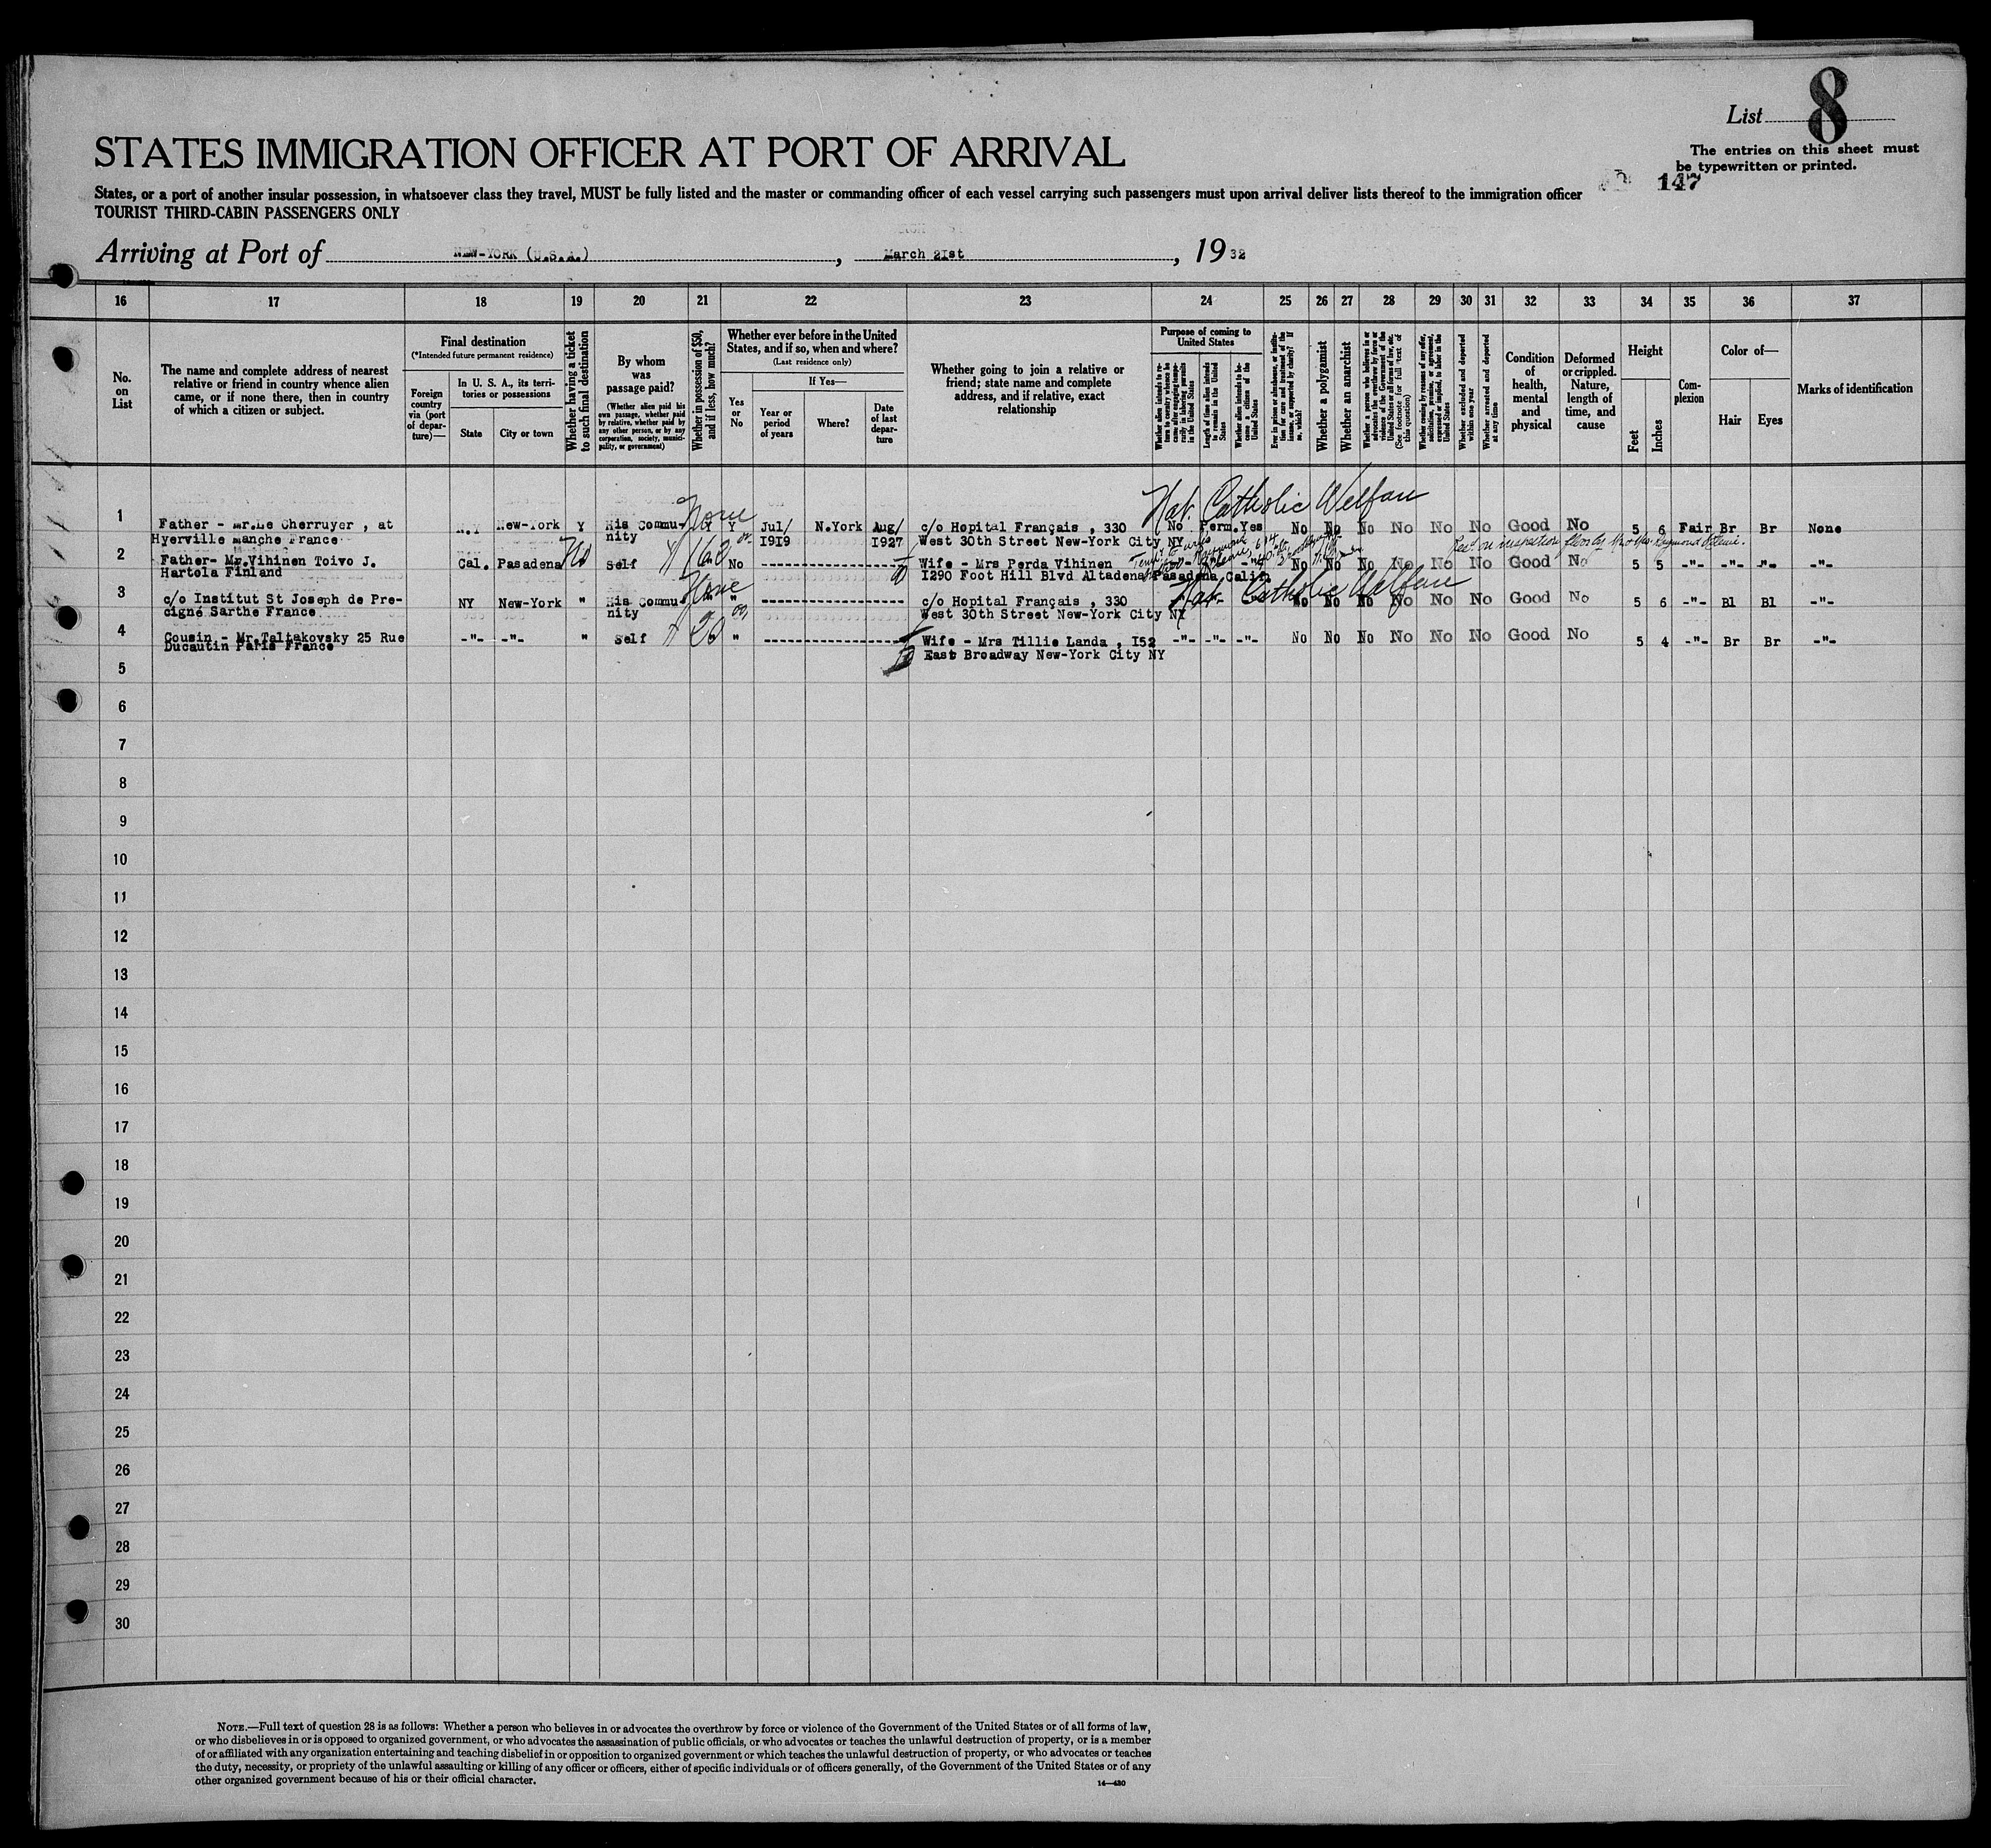 List 8
The entries on this sheet must
be typewritten or printed.
147
STATES IMMIGRATION OFFICER AT PORT OF ARRIVAL
States, or a port of another insular possession, in whatsoever class they travel, MUST be fully listed and the master or commanding officer of each vessel carrying such passengers must upon arrival deliver lists thereof to the immigration officer
TOURIST THIRD-CABIN PASSENGERS ONLY
Arriving at Port of NEW-YORK (U.S.A.), March 21st, 1932
16 17 18 19 20 21 22 23 24 25 26 27 28 29 30 31 32 33 34 35 36 37
No. on List
The name and complete address of nearest relative or friend in country whence alien came, or if none there, then in country of which a citizen or subject.
Final destination
(*Intended future permanent residence)
Foreign country via (port of departure)—
In U. S. A., its territories or possessions
State
City or town
Whether having a ticket to such final destination
By whom was passage paid?
(Whether alien paid his own passage, whether paid by relative, whether paid by any other person, or by any corporation, society, municipality, or government)
Whether in possession of $50, and if less, how much?
Whether ever before in the United States, and if so, when and where?
(Last residence only)
Yes or No
If Yes—
Year or period of years
Where?
Date of last departure
Whether going to join a relative or friend; state name and complete address, and if relative, exact relationship
Purpose of coming to United States
Whether alien intends to return to country whence he came after engaging temporarily in laboring pursuits in the United States
Length of time alien intends to remain in the United States
Whether alien intends to become a citizen of the United States
Ever in prison or almshouse, or institution for care and treatment of the insane, or supported by charity? If so, which?
Whether a polygamist
Whether an anarchist
Whether a person who believes in or advocates the overthrow by force or violence of the Government of the United States or all forms of law, etc. (See footnote for full text of this question)
Whether coming by reasons of any offer, solicitation, promise, or agreement, expressed or implied, to labor in the United States
Whether excluded and deported within one year
Whether arrested and deported at any time
Condition of health, mental and physical
Deformed or crippled. Nature, length of time, and cause
Height
Feet
Inches
Complexion
Color of—
Hair
Eyes
Marks of identification
Nat. Catholic Welfare
None
1 Father - Mr.Le Cherruyer , at N.Y New-York Y His Commu- Y Y Jul/ N.York Aug/ c/o Hopital Français , 330 No Perm. Yes No No No No No No Good No 5 6 Fair Br Br None
Hyerville Manche France nity 1919 1927 West 30th Street New-York City NY
2 Father- Mr.Vihinen Toivo J. Cal. Pasadena No Self 162 No Wife - Mrs Perda Vihinen No No No No No No Good No 5 5 -"- -"- -"- -"-
Hartola Finland I290 Foot Hill Blvd Altadena Pasadena Calif.
None Nat. Catholic Welfare
3 c/o Institut St Joseph de Pre- NY New-York " His Commu- " c/o Hopital Français , 330 No No No No No No Good No 5 6 -"- Bl Bl -"-
cigné Sarthe France nity West 30th Street New-York City NY
4 Cousin - Mr.Taltakovsky 25 Rue -"- -"- " Self 20 " Wife - Mrs Tillie Landa , I52 -"- -"- -"- No No No No No No Good No 5 4 -"- Br Br -"-
Ducautin Paris France East Broadway New-York City NY
5
6
7
8
9
10
11
12
13
14
15
16
17
18
19
20
21
22
23
24
25
26
27
28
29
30
NOTE.—Full text of question 28 is as follows: Whether a person who believes in or advocates the overthrow by force or violence of the Government of the United States or of all forms of law,
or who disbelieves in or is opposed to organized government, or who advocates the assassination of public officials, or who advocates or teaches the unlawful destruction of property, or is a member
of or affiliated with any organization entertaining and teaching disbelief in or opposition to organized government or which teaches the unlawful destruction of property, or who advocates or teaches
the duty, necessity, or propriety of the unlawful assaulting or killing of any officer or officers, either of specific individuals or of officers generally, of the Government of the United States or of any
other organized government because of his or their official character.
14—430